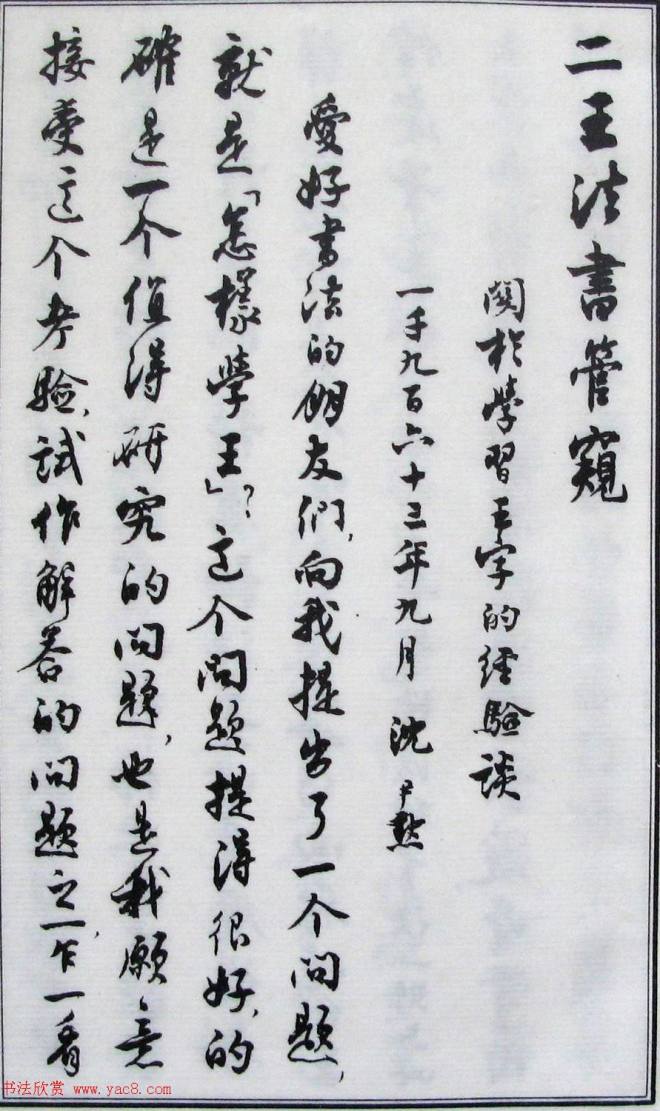 二王法書管窺
關於學習王字的經驗談
一千九百六十三年九月 沈尹默
愛好書法的朋友們，向我提出了一个问题，
就是「怎樣學王」？这个问题提得很好，的
確是一个值得研究的问题，也是我願意
接受这个考驗，試作解答的问题之一，乍一看
书法欣赏 www.yac8.com